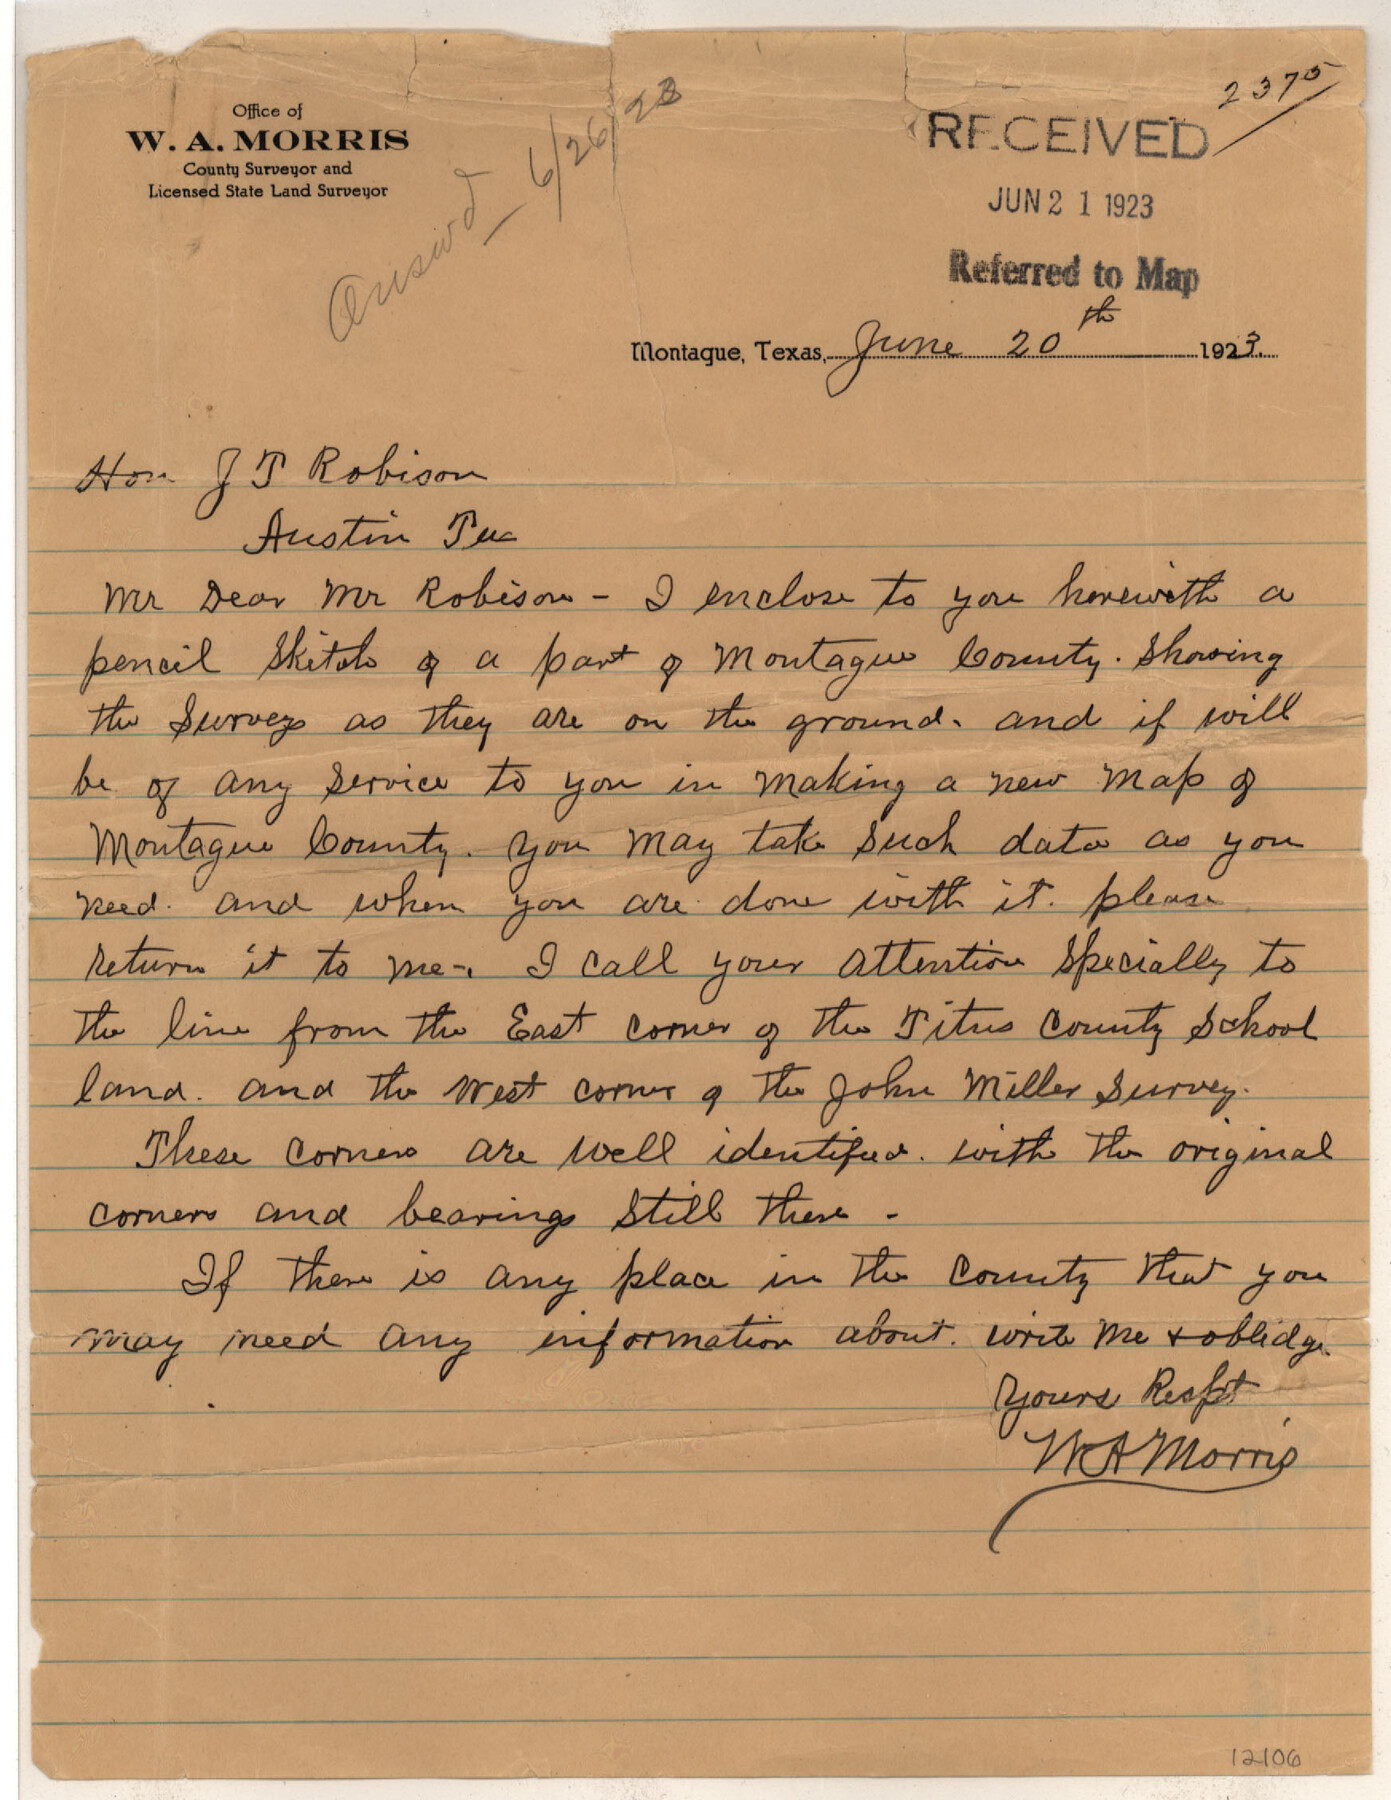 Office of
W. A. MORRIS
County Surveyor and
Licensed State Land Surveyor
Answd 6/26/23
2375
RECEIVED
JUN 21 1923
Referred to Map
Montague, Texas, June 20th 1923.
Hon J T Robison
Austin Tex
Mr Dear Mr Robison - I enclose to you herewith a
pencil sketch of a part of Montague County. Showing
the Surveys as they are on the ground. and if will
be of any service to you in making a new map of
Montague County. you may take such data as you
need. and when you are done with it. please
return it to me-. I call your attention specially to
the line from the East corner of the Titus County School
land. and the West corner of the John Miller Survey.
These corners are well identified. with the original
corners and bearings still there -
If there is any place in the County that you
may need any information about. write me & oblidge.
Yours Respt
W A Morris
12106